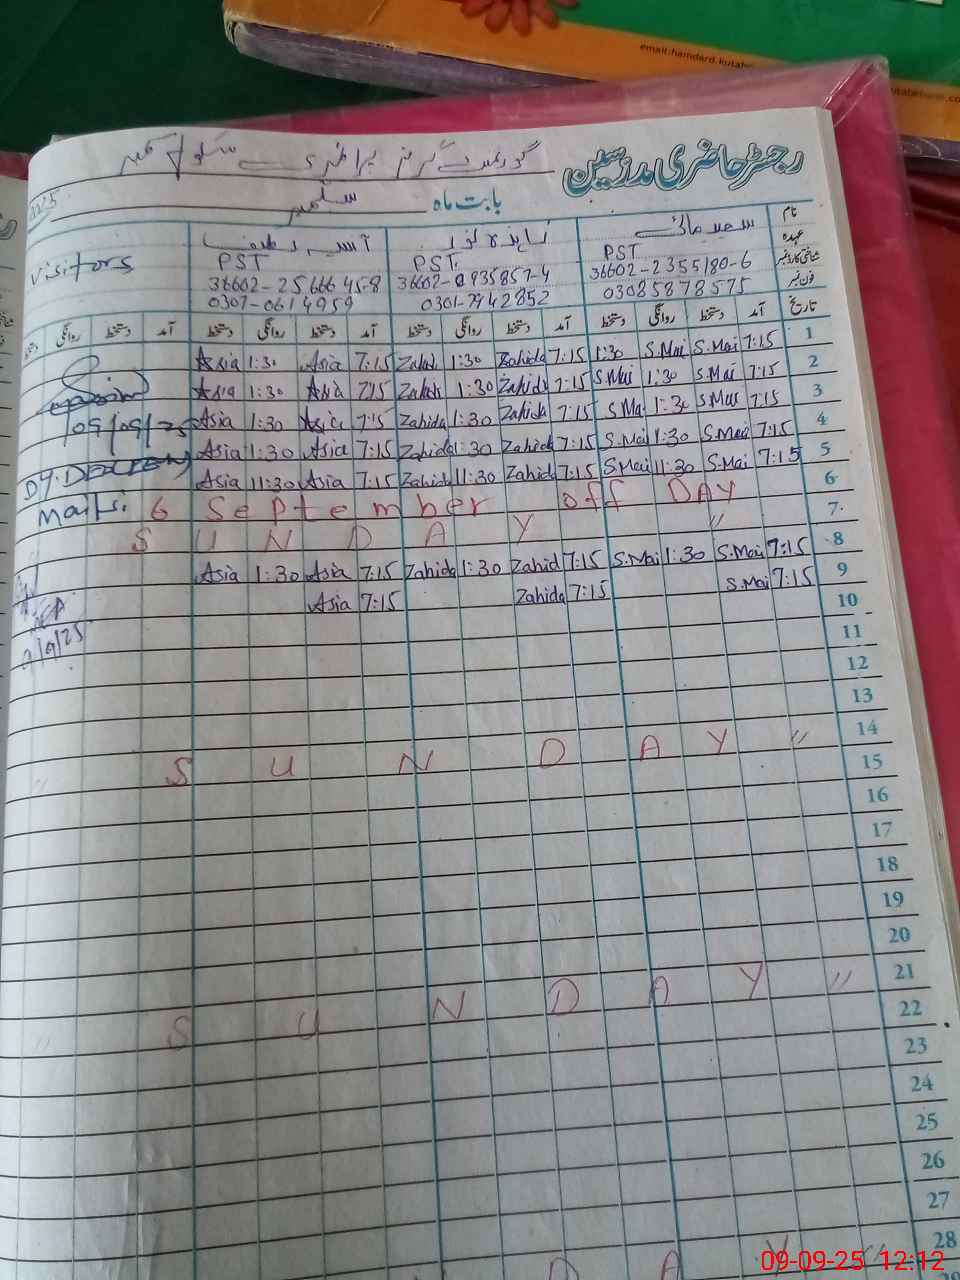 email:hamdard.kutabkhana
رجسٹر حاضری مدرسین
گورنمنٹ گرلز پرائمری سکول
بابت ماہ ستمبر 2025
نام
عہدہ
شناختی کارڈ نمبر
فون نمبر
PST
36602-2355180-6
03085878575
PST.
36602-0935857-4
0301-7942852
آسیہ لطیف
PST
36602-2566645-8
0307-0614959
Visitors
تاریخ آمد دستخط روانگی دستخط آمد دستخط روانگی دستخط آمد دستخط روانگی دستخط آمد دستخط روانگی
Asia 1:30 Asia 7:15 Zahida 1:30 Zahida 7:15 1:30 S.Mai S.Mai 7:15 1
Asia 1:30 Asia 7:15 Zahida 1:30 Zahida 7:15 S.Mai 1:30 S.Mai 7:15 2
Asia 1:30 Asia 7:15 Zahida 1:30 Zahida 7:15 S.Mai 1:30 S.Mai 7:15 3
Asia 1:30 Asia 7:15 Zahida 1:30 Zahida 7:15 S.Mai 1:30 S.Mai 7:15 4
Asia 11:30 Asia 7:15 Zahida 11:30 Zahida 7:15 S.Mai 11:30 S.Mai 7:15 5
6 September off DAY 6
SUNDAY " 7
Asia 1:30 Asia 7:15 Zahida 1:30 Zahid 7:15 S.Mai 1:30 S.Mai 7:15 8
Asia 7:15 Zahida 7:15 S.Mai 7:15 9
10
11
12
13
SUNDAY " 14
15
16
17
18
19
20
SUNDAY " 21
22
23
24
25
26
27
DAY " 28
09/09/25
09-09-25 12:12